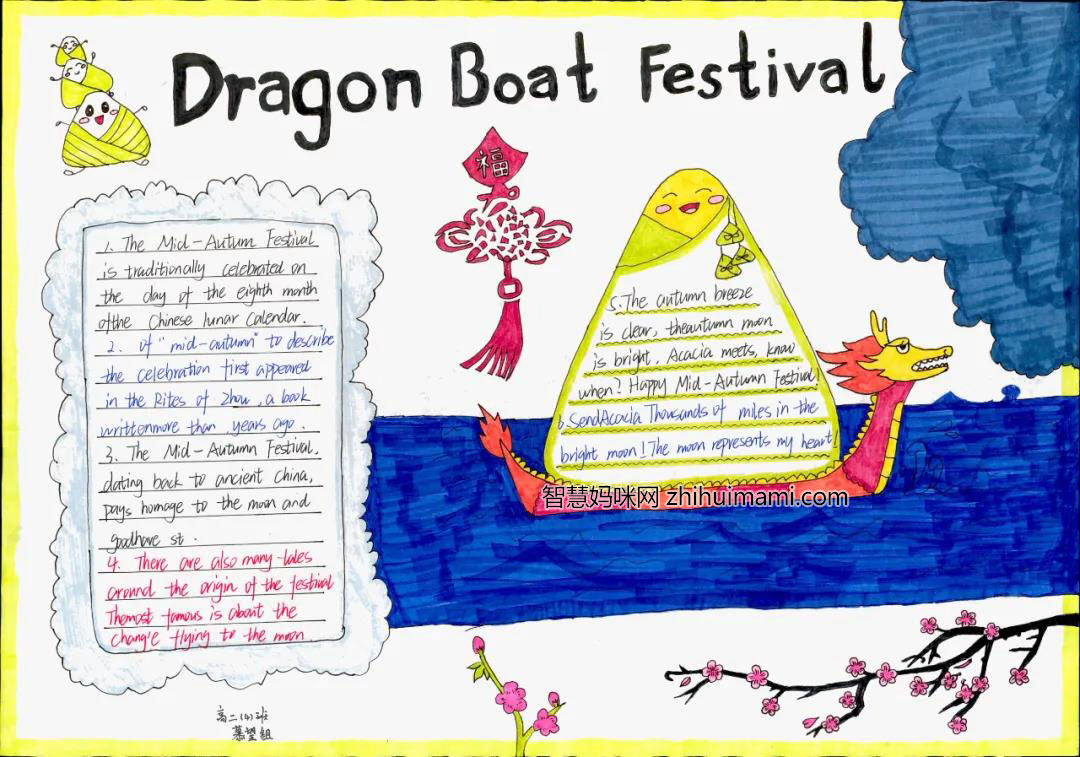 Dragon Boat Festival
福
1. The Mid-Autumn Festival
is traditionally celebrated on
the day of the eighth month
ofthe Chinese lunar Calendar.
2. of "mid-autumn" to describe
the celebration first appeared
in the Rites of Zhou, a book
writtenmore than years ago.
3. The Mid-Autumn Festival,
dating back to ancient China,
pays homage to the moon and
goodhave st.
4. There are also many-tales
around the origin of the festival
Themost famous is about the
chang'e flying to the moon
5. The autumn breeze
is clear, theautumn moon
is bright. Acacia meets, know
when? Happy Mid-Autumn Festival!
6. SendAcacia Thousands of miles in the
bright moon! The moon represents my heart!
智慧妈咪网 zhihuimami.com
高二(4)班
慕望组